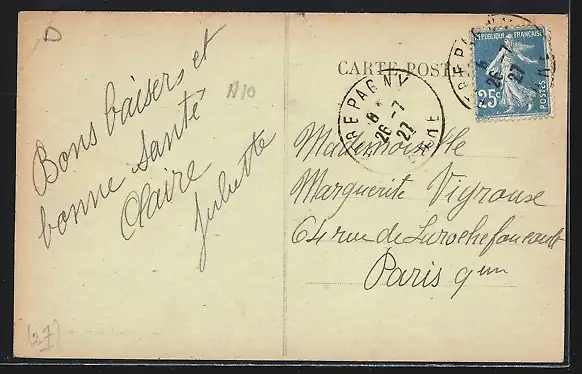 D
Bons baisers et
bonne santé
Claire
Juliette
A10
(27)
CARTE POSTALE
ETREPAGNY
8
26-7
27
EURE
REPUBLIQUE FRANÇAISE
25c
POSTES
Mademoiselle
Marguerite Vigroux
64 rue de Larochefoucault
Paris 9em